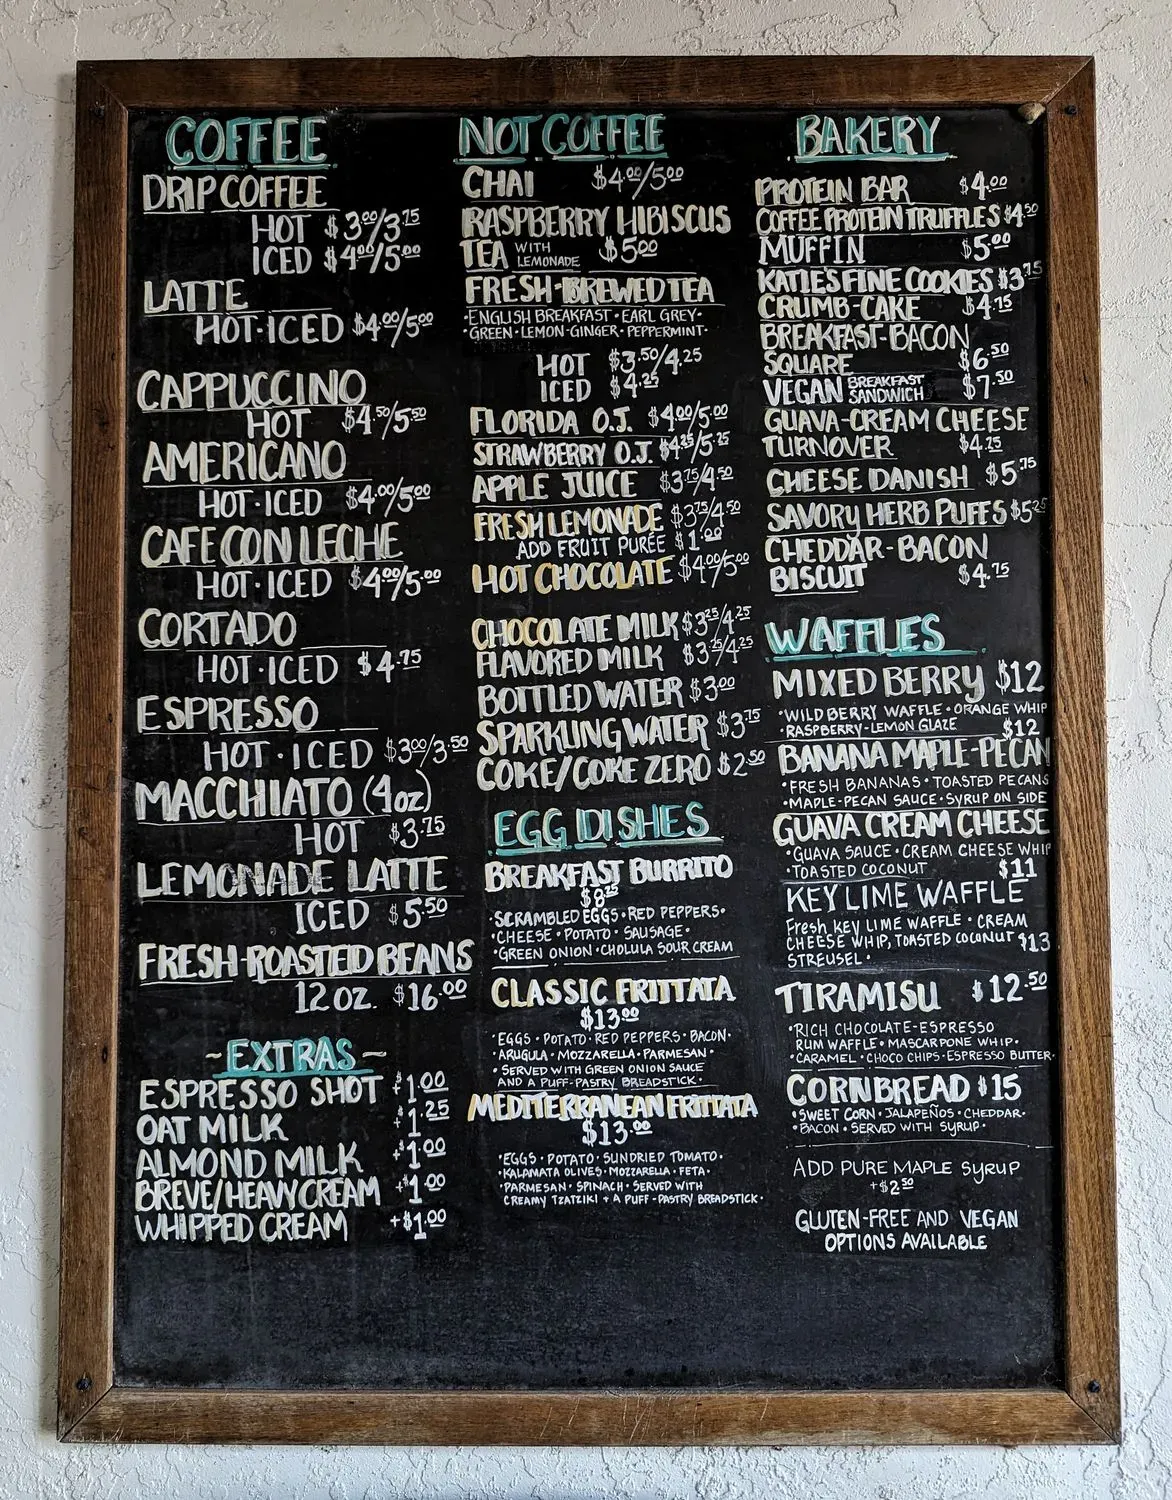 COFFEE
DRIP COFFEE
HOT $3.00/3.75
ICED $4.00/5.00
LATTE
HOT·ICED $4.00/5.00
CAPPUCCINO
HOT $4.50/5.50
AMERICANO
HOT·ICED $4.00/5.00
CAFE CON LECHE
HOT·ICED $4.00/5.00
CORTADO
HOT·ICED $4.75
ESPRESSO
HOT·ICED $3.00/3.50
MACCHIATO (4oz)
HOT $3.75
LEMONADE LATTE
ICED $5.50
FRESH-ROASTED BEANS
12 OZ. $16.00
~EXTRAS~
ESPRESSO SHOT +1.00
OAT MILK +1.25
ALMOND MILK +1.00
BREVE/HEAVY CREAM +1.00
WHIPPED CREAM +$1.00
NOT COFFEE
CHAI $4.00/5.00
RASPBERRY HIBISCUS
TEA WITH LEMONADE $5.00
FRESH-BREWED TEA
·ENGLISH BREAKFAST·EARL GREY·
·GREEN·LEMON-GINGER·PEPPERMINT·
HOT $3.50/4.25
ICED $4.25
FLORIDA O.J. $4.00/5.00
STRAWBERRY O.J. $4.25/5.25
APPLE JUICE $3.75/4.50
FRESH LEMONADE $3.75/4.50
ADD FRUIT PURÉE $1.00
HOT CHOCOLATE $4.00/5.00
CHOCOLATE MILK $3.25/4.25
FLAVORED MILK $3.25/4.25
BOTTLED WATER $3.00
SPARKLING WATER $3.75
COKE/COKE ZERO $2.50
EGG DISHES
BREAKFAST BURRITO
$8.25
·SCRAMBLED EGGS·RED PEPPERS·
·CHEESE·POTATO·SAUSAGE·
·GREEN ONION·CHOLULA SOUR CREAM
CLASSIC FRITTATA
$13.00
·EGGS·POTATO·RED PEPPERS·BACON·
·ARUGULA·MOZZARELLA·PARMESAN·
·SERVED WITH GREEN ONION SAUCE
AND A PUFF-PASTRY BREADSTICK·
MEDITERRANEAN FRITTATA
$13.00
·EGGS·POTATO·SUNDRIED TOMATO·
·KALAMATA OLIVES·MOZZARELLA·FETA·
·PARMESAN·SPINACH·SERVED WITH
CREAMY TZATZIKI + A PUFF-PASTRY BREADSTICK·
BAKERY
PROTEIN BAR $4.00
COFFEE PROTEIN TRUFFLES $4.50
MUFFIN $5.00
KATIE'S FINE COOKIES $3.75
CRUMB-CAKE $4.75
BREAKFAST-BACON
SQUARE $6.50
VEGAN BREAKFAST SANDWICH $7.50
GUAVA-CREAM CHEESE
TURNOVER $4.25
CHEESE DANISH $5.75
SAVORY HERB PUFFS $5.25
CHEDDAR-BACON
BISCUIT $4.75
WAFFLES
MIXED BERRY $12
·WILDBERRY WAFFLE·ORANGE WHIP
·RASPBERRY-LEMON GLAZE
$12
BANANA MAPLE-PECAN
·FRESH BANANAS·TOASTED PECANS
·MAPLE-PECAN SAUCE·SYRUP ON SIDE
GUAVA CREAM CHEESE
·GUAVA SAUCE·CREAM CHEESE WHIP
·TOASTED COCONUT $11
KEY LIME WAFFLE
Fresh Key LIME WAFFLE·CREAM
CHEESE WHIP, TOASTED COCONUT $13
STREUSEL·
TIRAMISU $12.50
·RICH CHOCOLATE-ESPRESSO
RUM WAFFLE·MASCARPONE WHIP·
·CARAMEL·CHOCO CHIPS·ESPRESSO BUTTER·
CORNBREAD $15
·SWEET CORN·JALAPEÑOS·CHEDDAR·
·BACON·SERVED WITH SYRUP·
ADD PURE MAPLE SYRUP
+$2.50
GLUTEN-FREE AND VEGAN
OPTIONS AVAILABLE